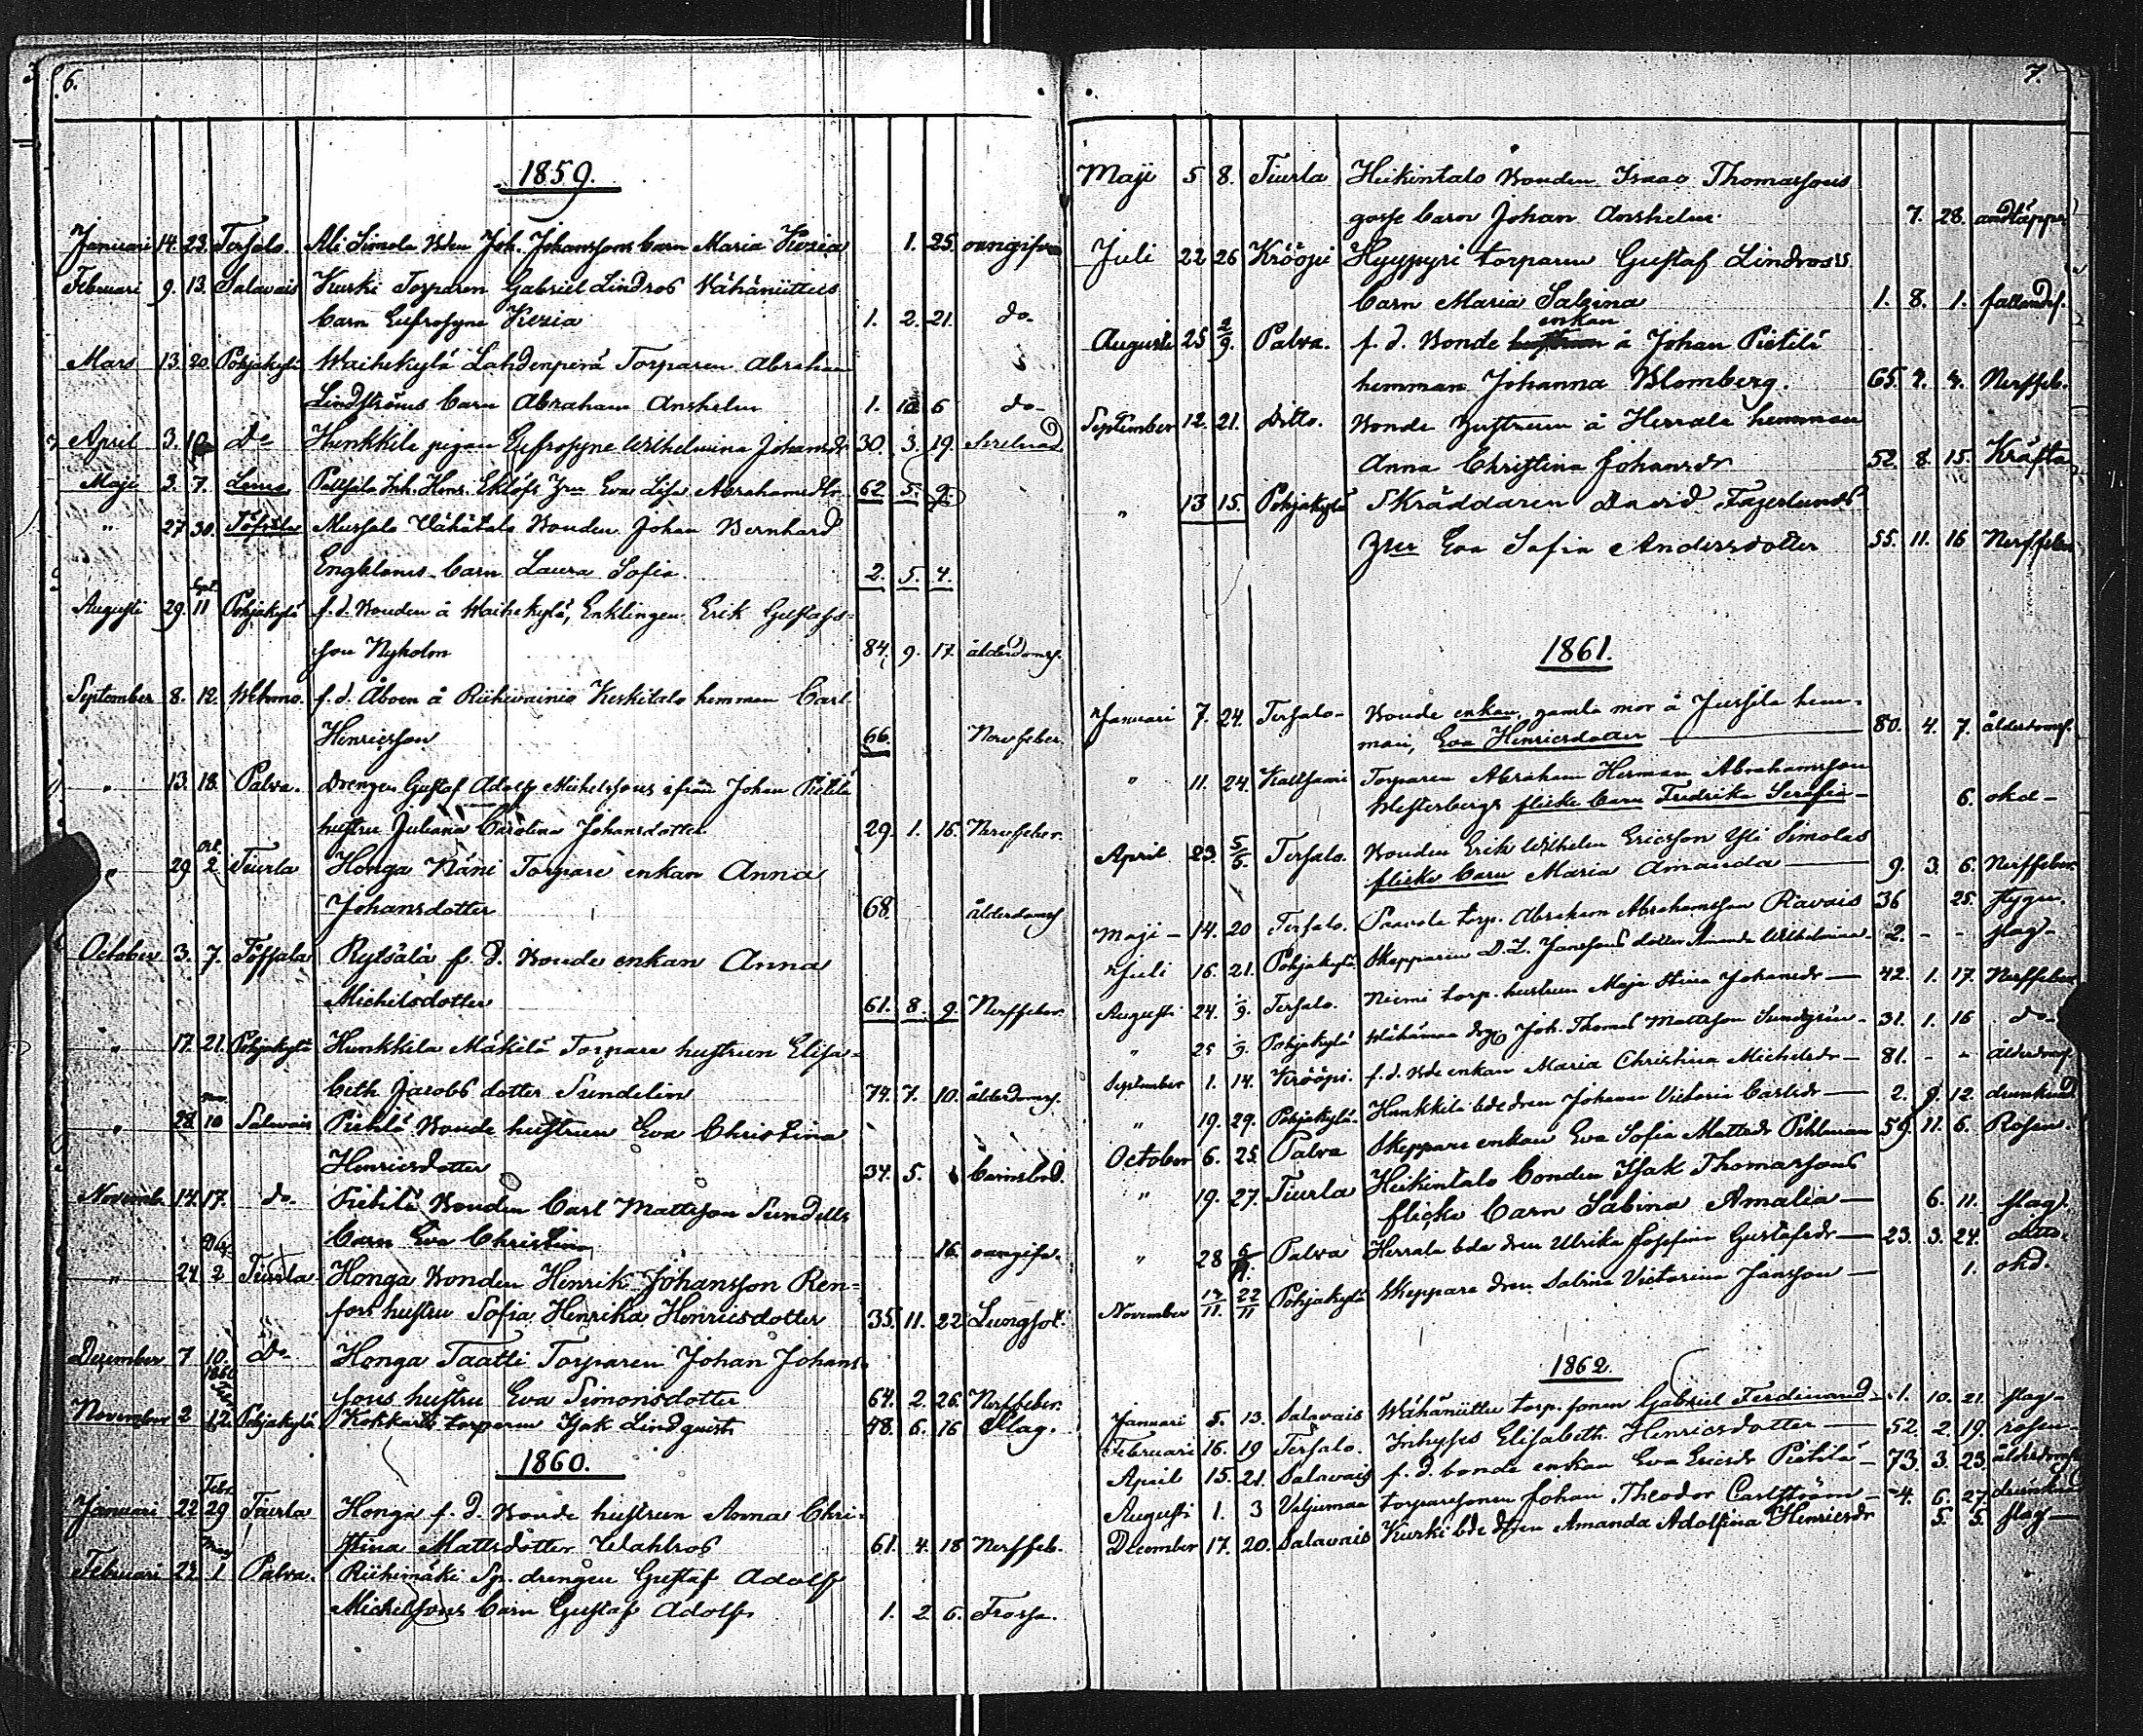 6.
1859.
Januari 14. 23. Tersalo. Ali Simola Bden Joh. Johanssons barn Maria Kezia 1. 25. oangifven
Februari 9. 13. Salavais Kurki Torparen Gabriel Lindros Vähäniittus
barn Eufrosyne Kezia 1. 2. 21. do
Mars 13. 20. Pohjakylä Waihekylä Lahdenperä Torparen Abraham
Lindströms barn Abraham Anshelm 1. 10 6 do
April 3. Do Hunkkila pigan Eufrosyne Wilhelmina Johansdr 30. 3. 19.
Maji 3. 7. Lemo Inh. Henr. Eklöfs Eva Lisa Abrahamsdtr 62 5. 9.
" 27 30. Vähätalo Bonden Johan Bernhard
Engbloms barn Laura Sofia 2. 5. 4.
Augusti 29. Sept. 11 Pohjakylä f. d. Bonden å Waihekylä, Enklingen Erik Gustafs=
son Nyholm 84. 9. 17. ålderdomsf.
September 8. 12. Wehmo. f. d. Åboen å Riihivainio Keskitalo hemman Carl
Henricsson 66. Nervfeber.
" 13. 18. Palva. Drengen Gustaf Adolf Michelssons ifrån Johan Pietilä
hustru Juliana Carolina Johansdotter 29. 1. 16. Nervfeber.
" 29 Oct. 2 Tiurla Honga Näni Torpare enkan Anna
Johansdotter 68. ålderdomsf
October 3. 7. Töffsala Rytsälä f. d. Bonde enkan Anna
Michelsdotter 61. 8. 9. Nerffeber.
" 17. 21. Pohjakylä Hunkkila Mäkilä Torpare hustrun Elisa=
beth Jacobsdotter Sundelin 74. 7. 10. ålderdomsf.
" 28. Nov. 10 Salavais Pietilä Bonde hustrun Eva Christina
Henricsdotter 34. 5. barnsbörd.
Novemb. 14. 17. do Pietilä Bonden Carl Mattsson Sundells
barn Eva Christina 16. oangifv.
" 24. Dec. 2 Tiurla Honga Bonden Henrik Johansson Ren=
fors hustru Sofia Henrika Henricsdotter 35. 11. 22 Lungsot.
December 7 10. Do Honga Taatti Torparen Johan Johans
sons hustru Eva Simonsdotter 64. 2. 26. Nerffeber.
November 2 1860 12. Pohjakylä torparen Isak Lindqvist 48. 6. 16 Slag.
1860.
Januari 22 Febr. 29 Tiurla Honga f. d. Bonde hustrun Anna Chri=
stina Mattsdotter Wahlros 61. 4. 18 Nerffeb.
Februari 23. 1 Palva. Riihimäki Sp. drengen Gustaf Adolf
Michelssons barn Gustaf Adolf 1. 2 6. Frossa.
7.
Maji 5 8. Tiurla Heikintalo Bonden Isaac Thomassons
gosse barn Johan Anshelm. 7. 28. andtäppa
Juli 22 26 Krööpi Hyypyri torparen Gustaf Lindroos
barn Maria Sabina 1. 8. 1. fallands.
Augusti 25 2/9. Palva. f. d. Bonde enkan å Johan Pietilä
hemman Johanna Blomberg. 65. 7. 4. Nerffeb.
September 12. 21. Ditto. Bonde hustrun å Herrala hemman
Anna Christina Johansdr 52. 8. 15. Kräfta
" 13 15. Pohjakylä Skräddaren David Fagerlunds
Eva Sofia Andersdotter 55. 11. 16 Nerffeber
1861.
Januari 7. 24. Tersalo Bonde enkan, gamla mor å Jussila hem=
man, Eva Henricsdotter 80. 4. 7. ålderdomsf.
" 11. 24. Kaitsami Torparen Abraham Herman Abrahamsson
Westerbergs flicke barn Fredrika Serafia 6. okd
April 23. 5/5. Tersalo. Bonden Erik Wilhelm Ericsson Yli Simolas
flicke barn Maria Amanda 9. 3. 6. Nerffeber.
Maji 14. 20 Tersalo. Paavola torp. Abraham Abrahamsson Ravais 36 25.
Juli 16. 21. Pohjakylä Skepparen D. L. Janssons dotter Amanda Wilhelmina 2. - - slag
Augusti 24. Tersalo. Niemi torp. hustrun Maja Stina Johansdr 42. 1. 17. Nerffeber
" 25 Pohjakylä Joh. Thomas Mattsson Sundgrén 31. 1. 16 do
September 1. 14. Krööpi. f. d. Bde enkan Maria Christina Michelsdr 81. - - ålderdomsf.
" 19. 29. Pohjakylä. Hunkkila bde dren Johanna Victoria Carlsdr 2. 9. 12. drunknad
October 6. 25. Palva Skeppare enkan Eva Sofia Mattsdr Pihlman 59. 11. 6. Rosen.
" 19. 27. Tiurla Heikintalo bonden Isak Thomassons
flicke barn Sabina Amalia 6. 11. slag.
" 28 Palva Herrala bde dren Ulrika Josefina Gustafsdr 23. 3. 24. ditto.
November 17/11. 22/11 Pohjakylä Skeppare dren Sabina Victorina Jansson 1. okd.
1862.
Januari 5. 13. Salavais Wähäniittu torp. sonen Gabriel Ferdinand 1. 10. 21. slag
Februari 16. 19 Tersalo. Inhyses Elisabeth Henricsdotter 52. 2. 19. rosen
April 15. 21. Salavais f. d. bonde enkan Eva Ericsdr Pietilä 73. 3. 23. ålderdomsf
Augusti 1. 3 Valjumaa torparesonen Johan Theodor Carlström 4. 6. 27. drunknad
December 17. 20. Salavais Kurki bde dren Amanda Adolfina Henricsdr 5. 5. slag